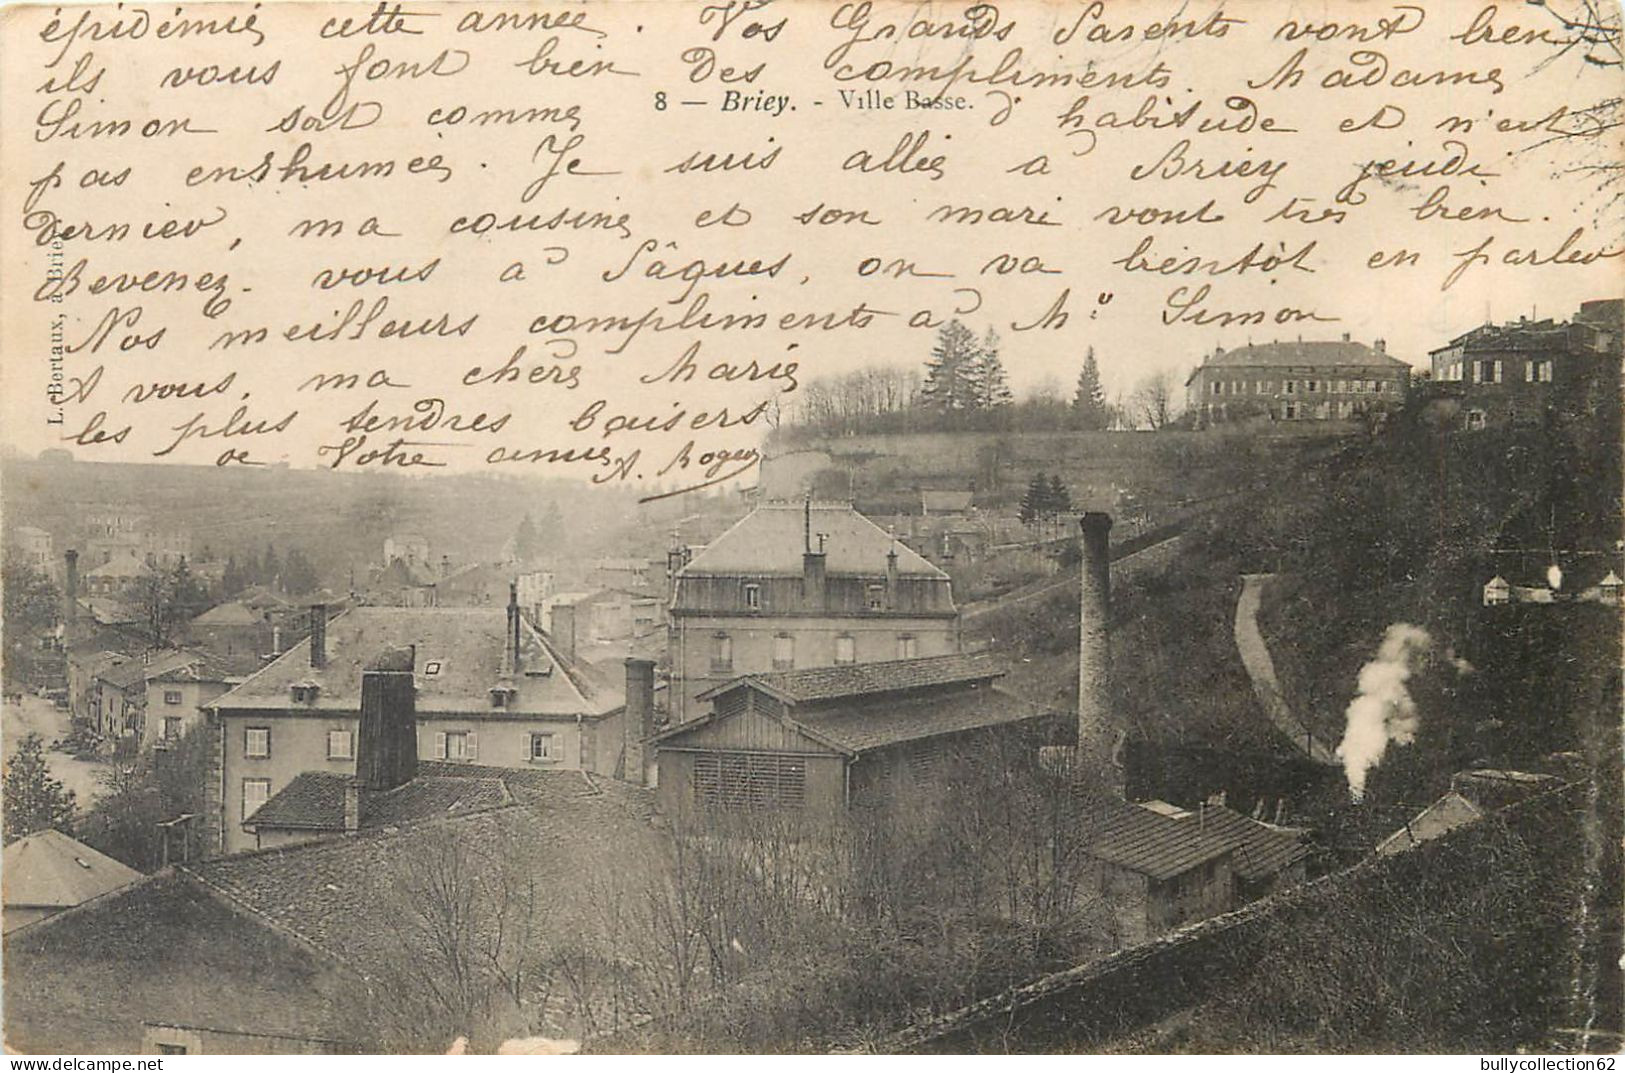 épidémie, cette année. Vos Grands Parents vont bien,
ils vous font bien des compliments. Madame
8 — Briey. - Ville Basse.
Simon sort comme d'habitude et n'est
pas enrhumée. Je suis allée à Briey jeudi
dernier, ma cousine et son mari vont très bien.
Revenez-vous à Pâques, on va bientôt en parler
Nos meilleurs compliments à Mr Simon
A vous, ma chère Marie
les plus tendres baisers
de Votre amie A. Roger
L. Bertaux, à Briey
bullycollection62